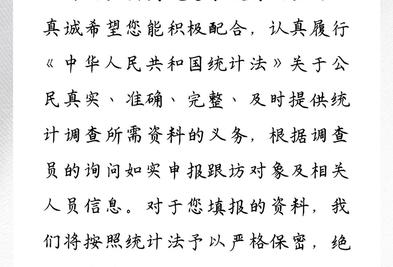 真诚希望您能积极配合，认真履行
《中华人民共和国统计法》关于公
民真实、准确、完整、及时提供统
计调查所需资料的义务，根据调查
员的询问如实申报跟坊对象及相关
人员信息。对于您填报的资料，我
们将按照统计法予以严格保密，绝